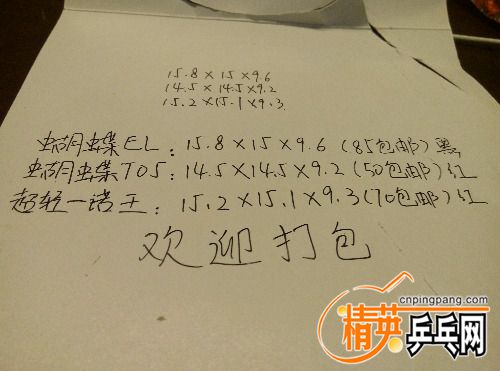 15.8×15×9.6
14.5×14.5×9.2
15.2×15.1×9.3
蝴蝶EL:15.8×15×9.6(85包邮)黑
蝴蝶T05:14.5×14.5×9.2(50包邮)红
超轻一诺王:15.2×15.1×9.3(70包邮)红
欢迎打包
cnpingpang.com
精英乒乓网